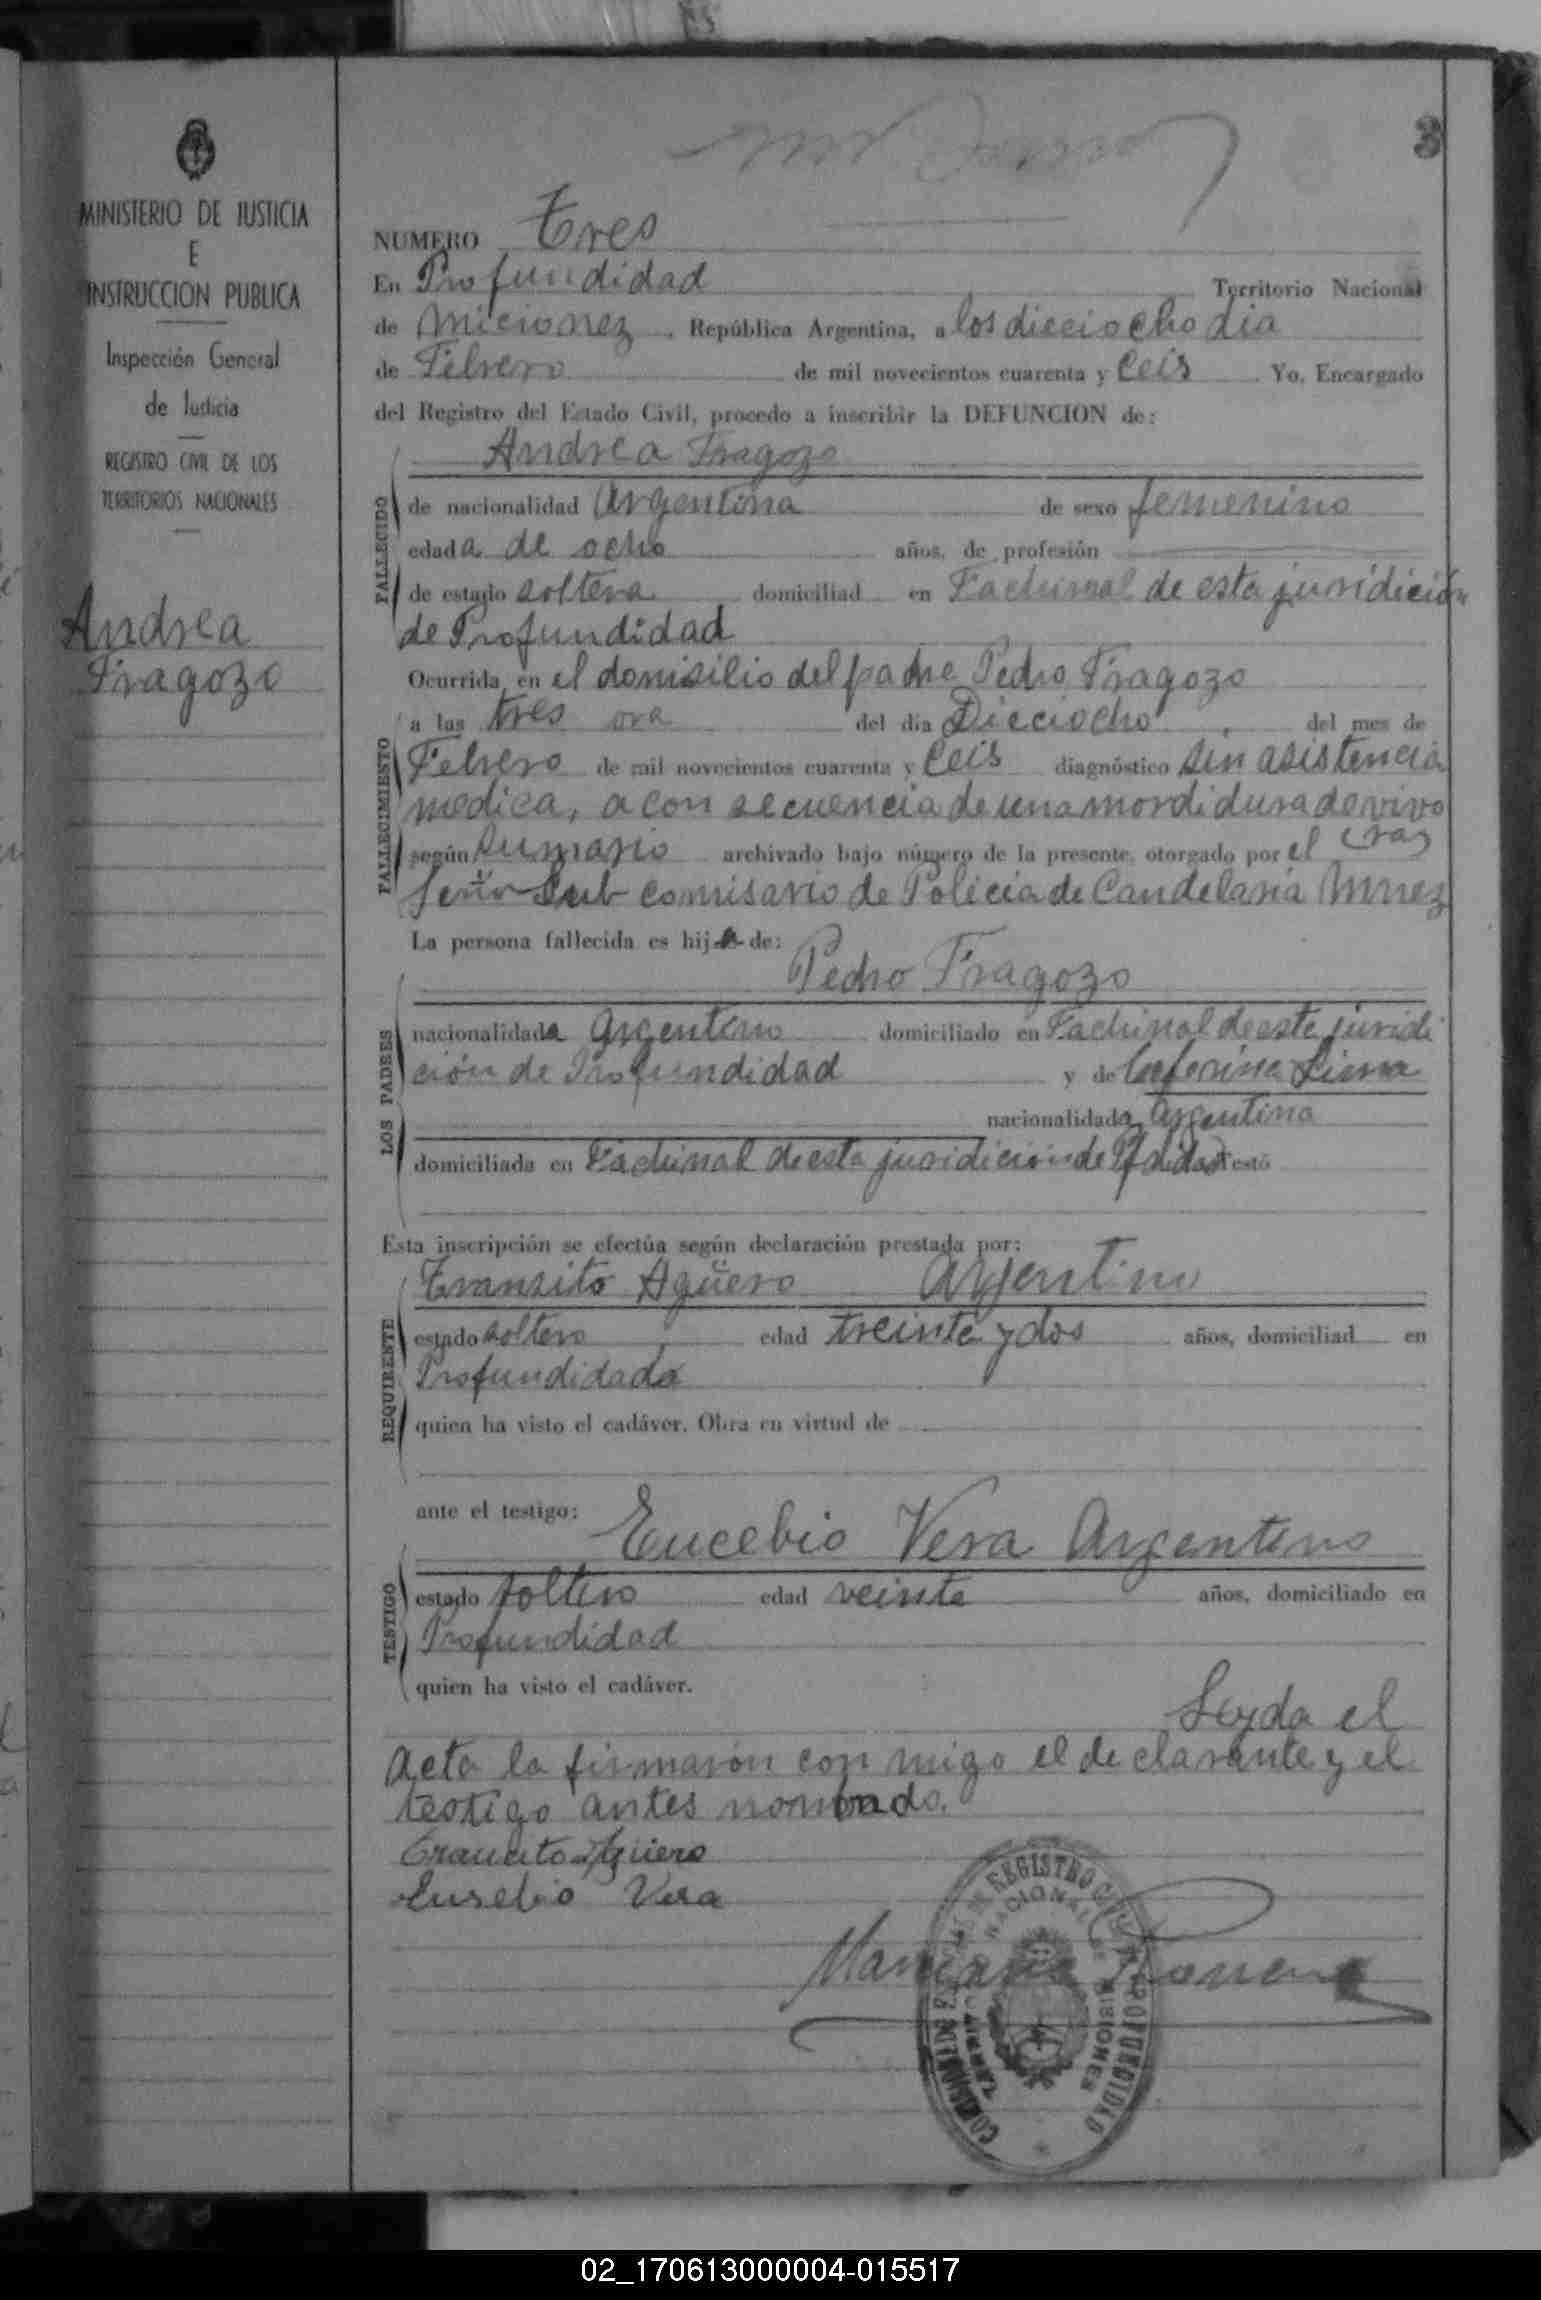 3
MINISTERIO DE JUSTICIA
E
INSTRUCCION PUBLICA
Inspección General
de Justicia
REGISTRO CIVIL DE LOS
TERRITORIOS NACIONALES
Andrea
Fragozo
NUMERO Tres
En Profundidad Territorio Nacional
de Micionez, República Argentina, a los diecciocho dia
de Febrero de mil novecientos cuarenta y Ceis Yo, Encargado
del Registro del Estado Civil, procedo a inscribir la DEFUNCION de:
Andrea Fragozo
FALLECIDO
de nacionalidad Argentina de sexo femenino
edada de ocho años, de profesión
de estado soltera domiciliad en Fachinal de esta juridición
de Profundidad
Ocurrida en el domisilio del padre Pedro Fragozo
a las tres ora del día Diecciocho del mes de
FALLECIMIENTO
Febrero de mil novecientos cuarenta y Ceis diagnóstico sin asistencia
medica, a con secuencia de una mordidura de vivo
ras
según Sumario archivado bajo número de la presente, otorgado por el
Señor Sub comisario de Policia de Candelaria
La persona fallecida es hija de:
Pedro Fragozo
LOS PADRES
nacionalidada Argentino domiciliado en Fachinal de este juridi
ción de Profundidad y de Ceferina Lima
nacionalidada Argentina
domiciliada en Fachinal de esta juridición de
Esta inscripción se efectúa según declaración prestada por:
Transito Agüero Argentino
REQUIRENTE
estado soltero edad treinte y dos años, domiciliad en
Profundidada
quien ha visto el cadáver. Obra en virtud de
ante el testigo:
Eucebio Vera Argentino
TESTIGO
estado soltero edad veinte años, domiciliado en
Profundidad
quien ha visto el cadáver.
Leyda el
Acta la firmarón con migo el de clarante y el
testigo antes nombrado.
Trancito Agüero
Eusebio Vera
REGISTRO CIVIL
PROFUNDIDAD
TERRITORIO NACIONAL DE MISIONES
02_170613000004-015517